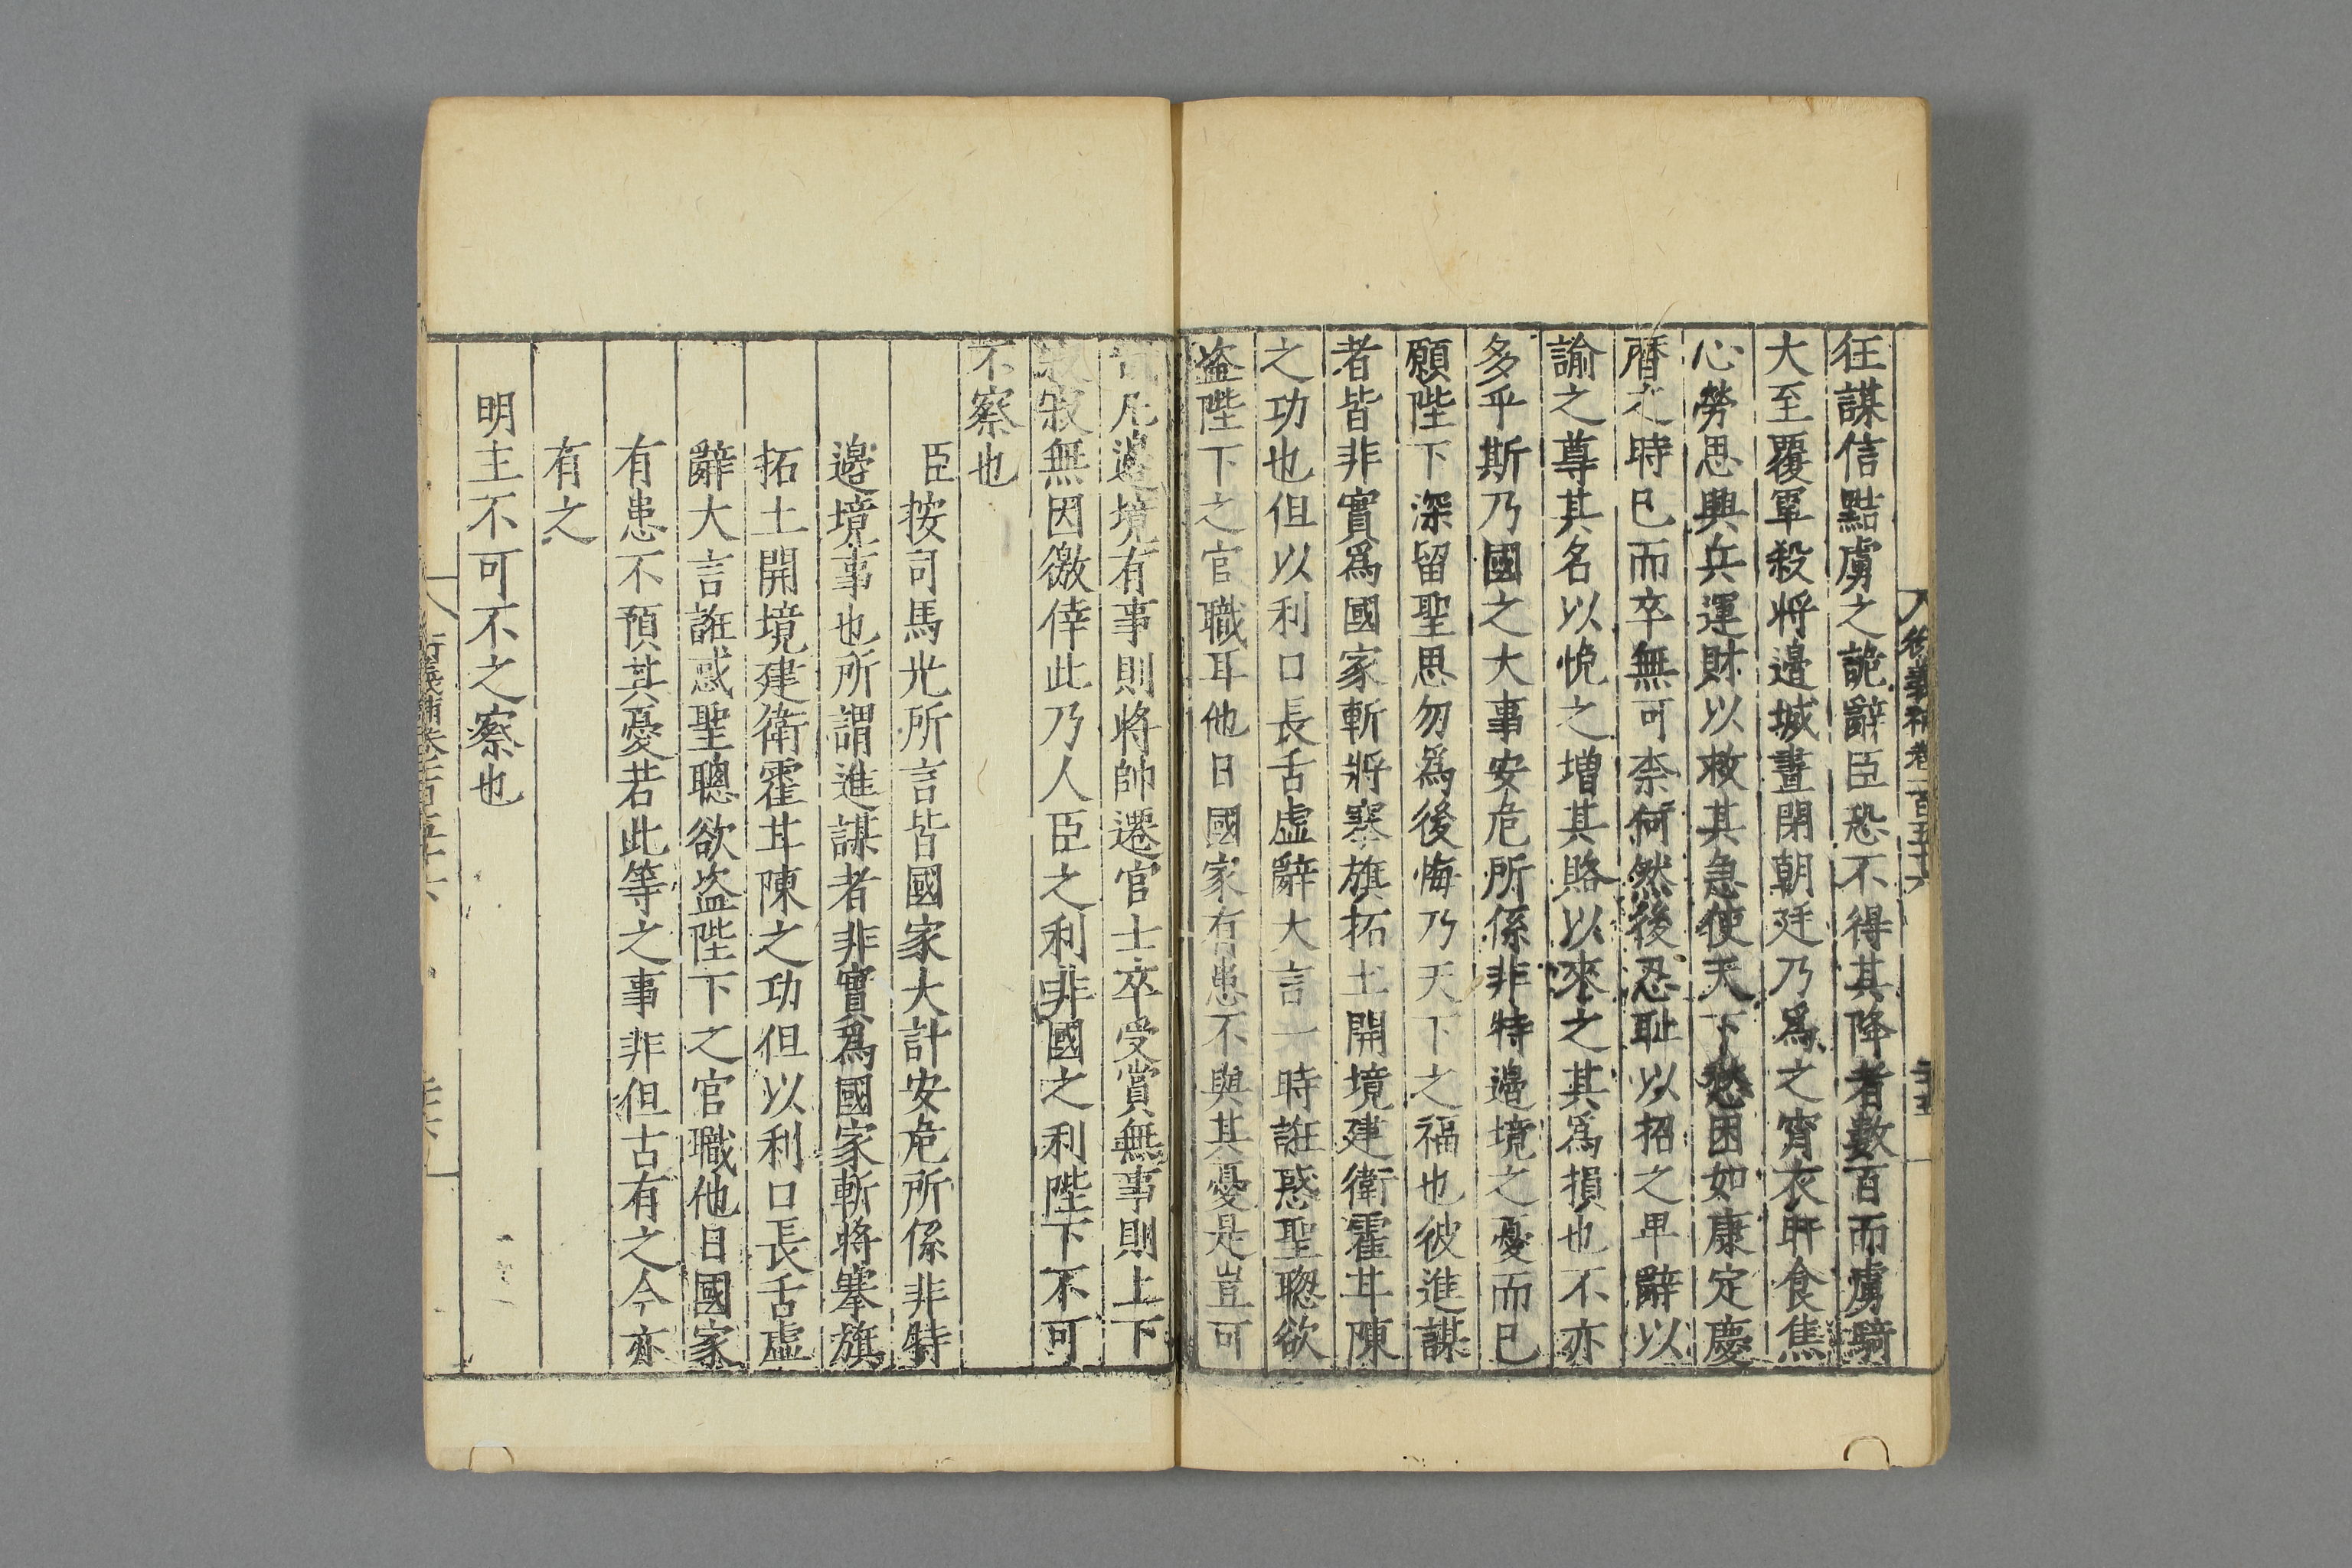 狂謀信黠虜之詭辭臣恐不得其降者數百而虜騎
大至覆軍殺將邊城晝閉朝廷乃爲之宵衣旰食焦
心勞思興兵運財以救其急使天下愁困如康定慶
曆之時已而卒無可柰何然後忍耻以招之卑辭以
諭之尊其名以悅之增其賂以來之其爲損也不亦
多乎斯乃國之大事安危所係非特邊境之憂而已
願陛下深留聖思勿爲後悔乃天下之福也彼進謀
者皆非實爲國家斬將搴旗拓土開境建衛霍甘陳
之功也但以利口長舌虛辭大言一時誑惑聖聰欲
盗陛下之官職耳他日國家有患不與其憂是豈可
凡邊境有事則將帥遷官士卒受賞無事則上下
寂寂無因徼倖此乃人臣之利非國之利陛下不可
不察也
臣按司馬光所言皆國家大計安危所係非特
邊境事也所謂進謀者非實爲國家斬將搴旗
拓土開境建衛霍甘陳之功但以利口長舌虛
辭大言誑惑聖聰欲盗陛下之官職他日國家
有患不預其憂若此等之事非但古有之今亦
有之
明主不可不之察也
衍義補卷一百五十六